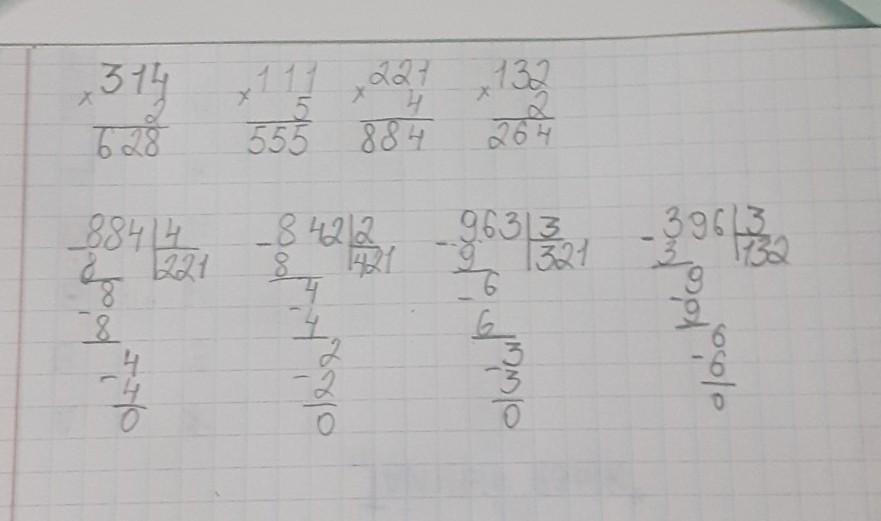 ×314 ×111 ×221 ×132
2 5 4 2
628 555 884 264
-884|4 -842|2 -963|3 -396|3
8 |221 8 |421 9 |321 3 |132
-8 -4 -6 -9
8 4 6 9
-4 -2 -3 -6
4 2 3 6
0 0 0 0